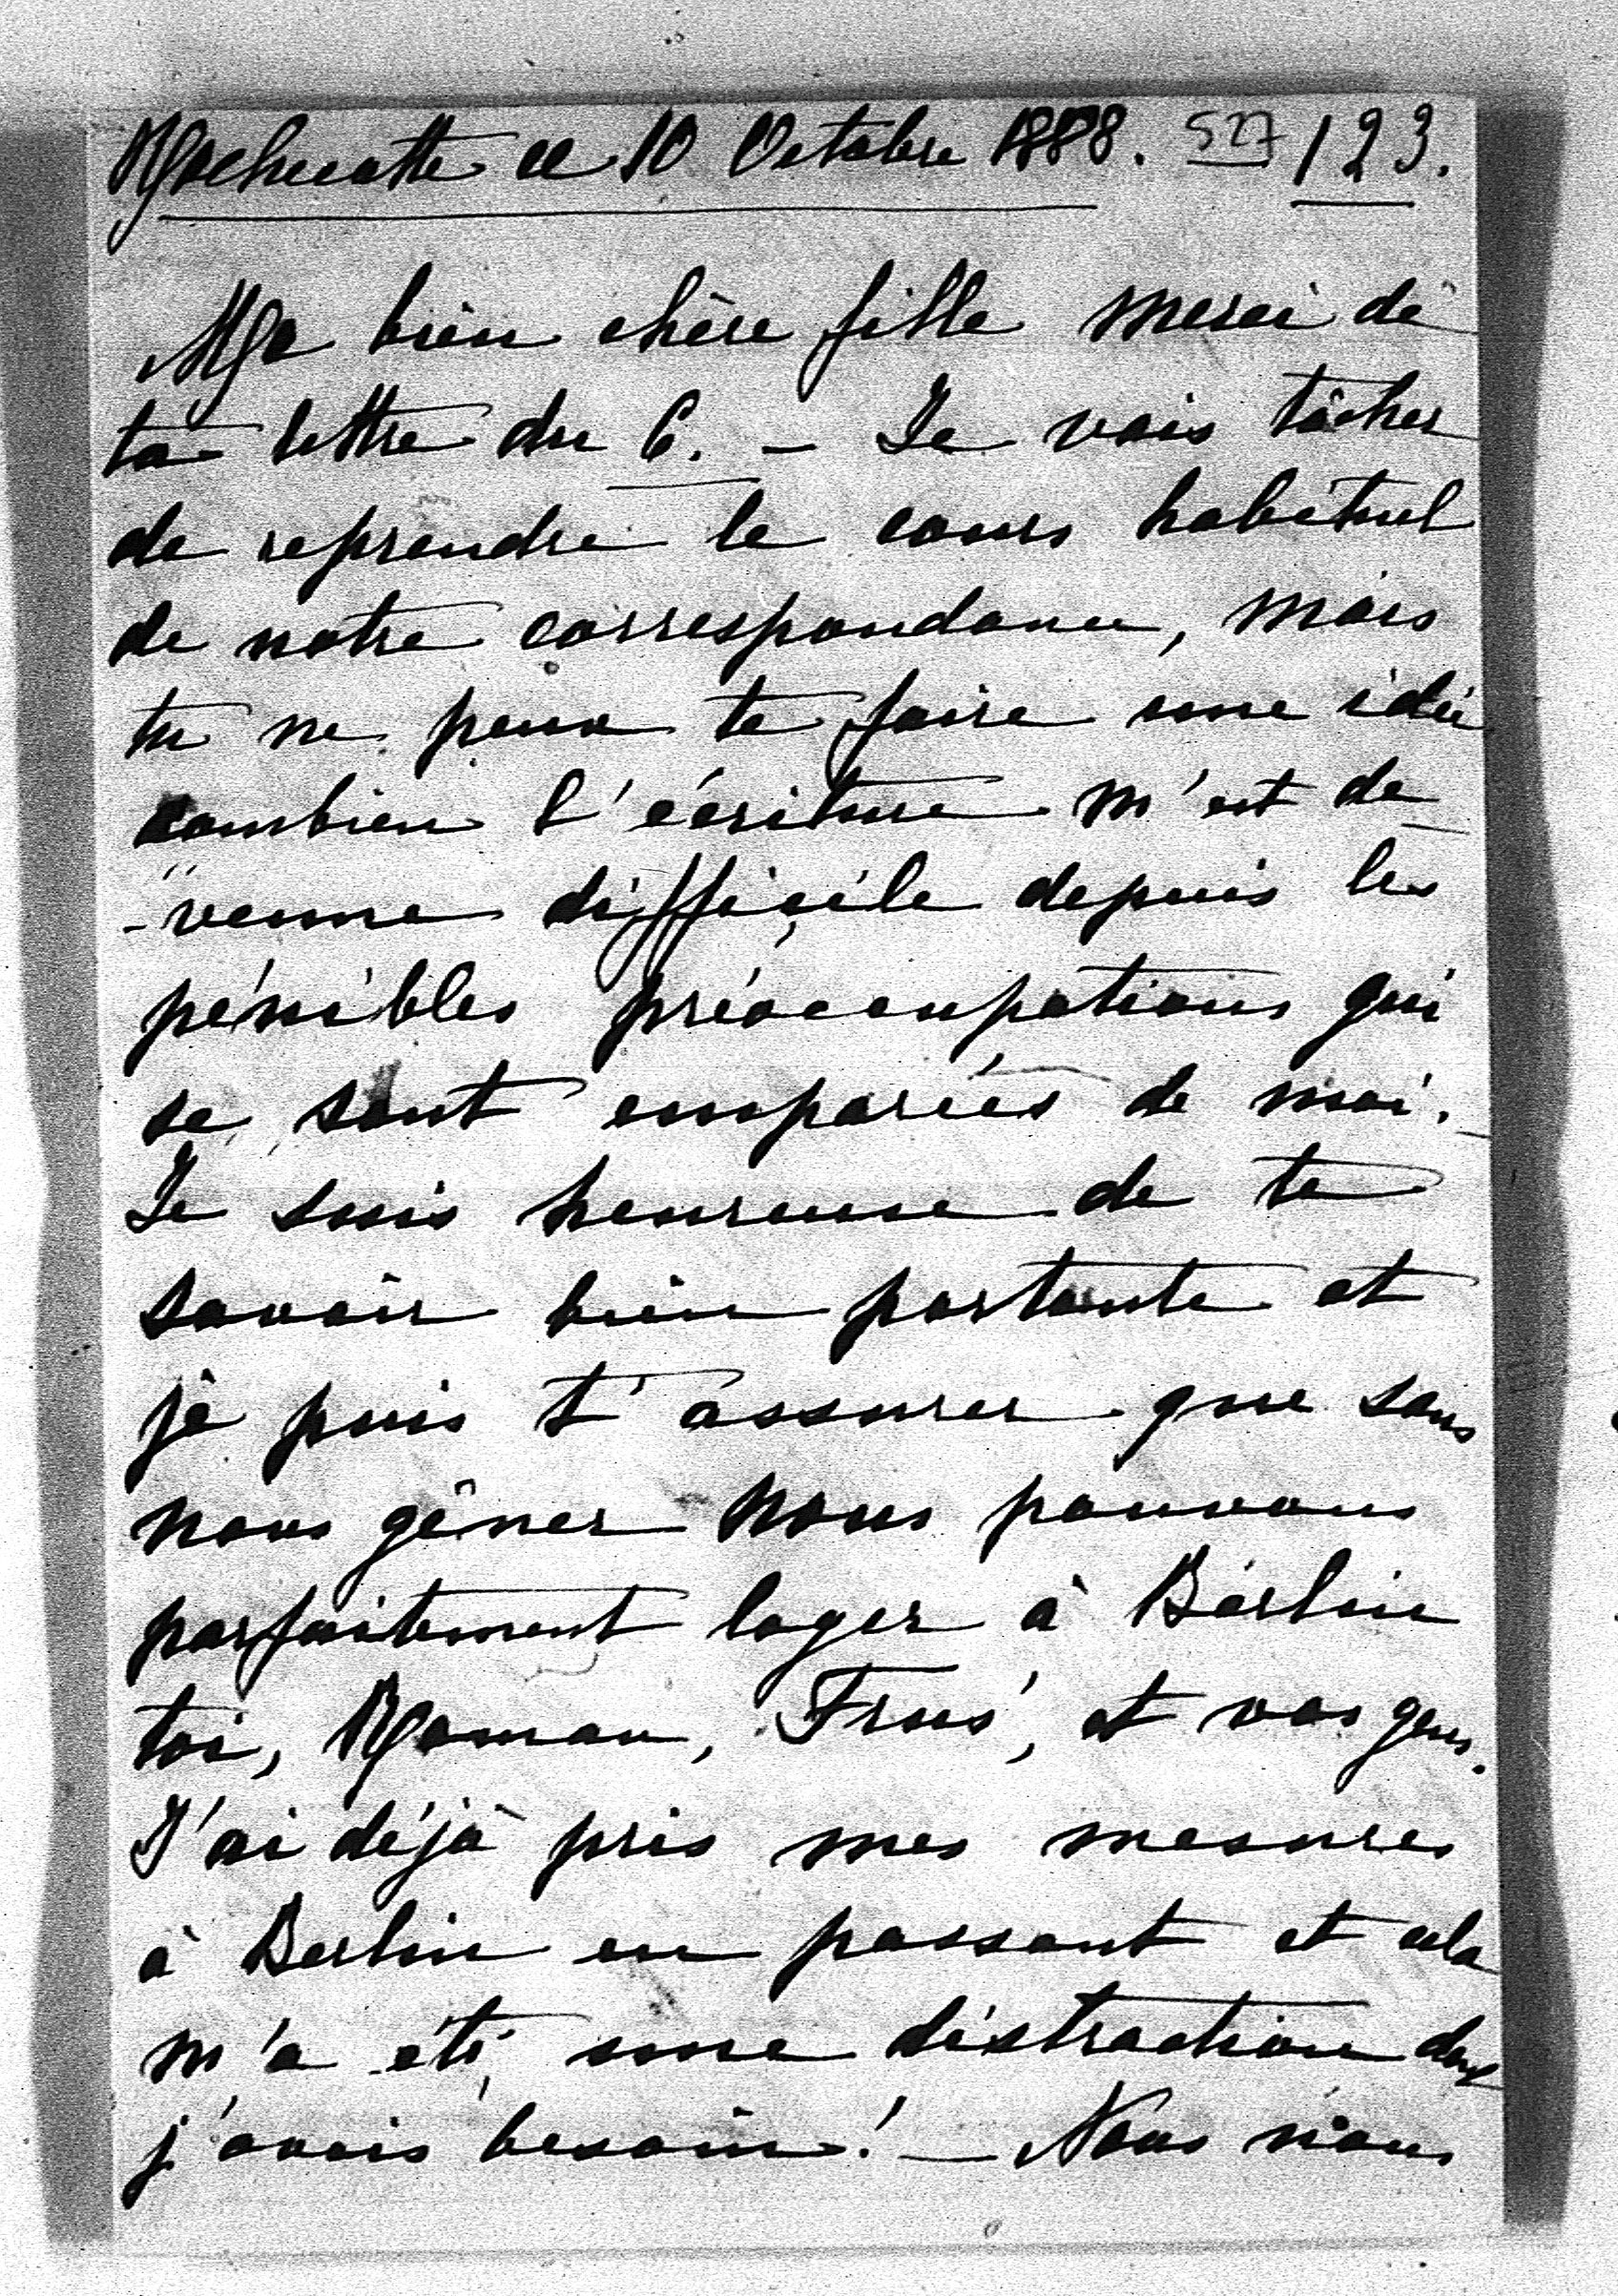 Rochecotte ce 10 Octobre 1888. 527 123.
Ma bien chère fille merci de
ta lettre du 6. – Je vais tâcher
de reprendre le cours habituel
de notre correspondance, mais
tu ne peux te faire une idée
combien l'écriture m'est de-
-venue difficile depuis les
pénibles préoccupations qui
se sont emparées de moi. –
Je suis heureuse de te
savoir bien portante et
je puis t'assurer que sans
nous gêner nous pouvons
parfaitement loger à Berlin
toi, Roman, et vos gens.
J'ai déjà pris mes mesures
à Berlin en passant et cela
m'a été une distraction dont
j'avais besoin! – Nous n'avons